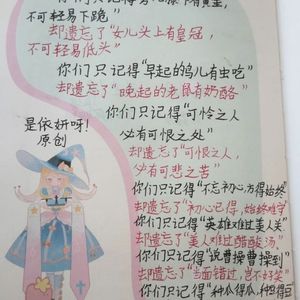 不可轻易下跪"
却遗忘了"女儿头上有皇冠，
不可轻易低头"
你们只记得"早起的鸟儿有虫吃"
却遗忘了"晚起的老鼠有奶酪"
你们只记得"可怜之人
必有可恨之处"
却遗忘了"可恨之人，
必有可悲之苦"
是依妍呀!
原创
你们只记得"不忘初心，方得始终
却遗忘了"初心易得，始终难守
你们只记得"英雄难过美人关"
却遗忘了"美人难过醋酸汤"
你们只记得"说曹操曹操到"
却遗忘了"当面错过，岂不好笑"
你们只记得"种瓜得瓜，种豆得豆